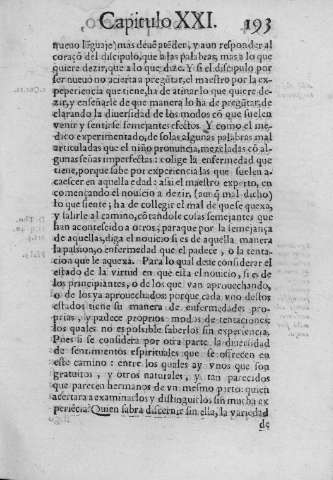 Capitulo XXI. 193
nueuo lẽguaje) mas deuẽ atẽder, y aun responder al
coraçõ del discipulo, que a las palabras, mas a lo que
quiere dezir, que a lo que dize. Y si el discipulo por
ser nueuo no acierta a pregũtar, el maestro por la ex-
peperiencia que tiene, ha de atinar lo que quiere de-
zir, y enseñarle de que manera lo ha de pregũtar, de
clarando la diuersidad de los modos cõ que suelen
venir y sentirse semejantes efectos. Y como el me-
dico experimentado, de solas algunas palabras mal
articuladas que el niño pronuncia, mezcladas cõ al-
gunas señas imperfectas: colige la enfermedad que
tiene, porque sabe por experiencia las que suelen a-
caescer en aquella edad: assi el maestro experto, en
comenţando el nouicio a dezir, (aunq̃ mal dicho)
lo que siente; ha de collegir el mal de que se quexa,
y salirle al camino, cõtandole cosas semejantes que
han acontescido a otros; para que por la semejança
de aquellas, diga el nouicio si es de aquella manera
la passion, o enfermedad que el padece, o la tenta-
cion que le aquexa. Para lo qual deue considerar el
estado de la virtud en que esta el nouicio, si es de
los principiantes, o de los que van aprouechando,
o de los ya aprouechados: porque cada vno destos
estados tiene su manera de enfermedades pro-
prias, y padece proprios modos de tentaciones:
los quales no es possible saberlos sin experiencia.
Pues si se considera por otra parte la diuersidad
de sentimientos espirituales que se ofrecen en
este camino: entre los quales ay vnos que son
gratuitos, y otros naturales, y tan parecidos
que parecen hermanos de vn mesmo parto: quien
acertara a examinarlos y distinguirlos sin mucha ex
periẽcia? Quien sabra discernir sin ella, la variedad
de